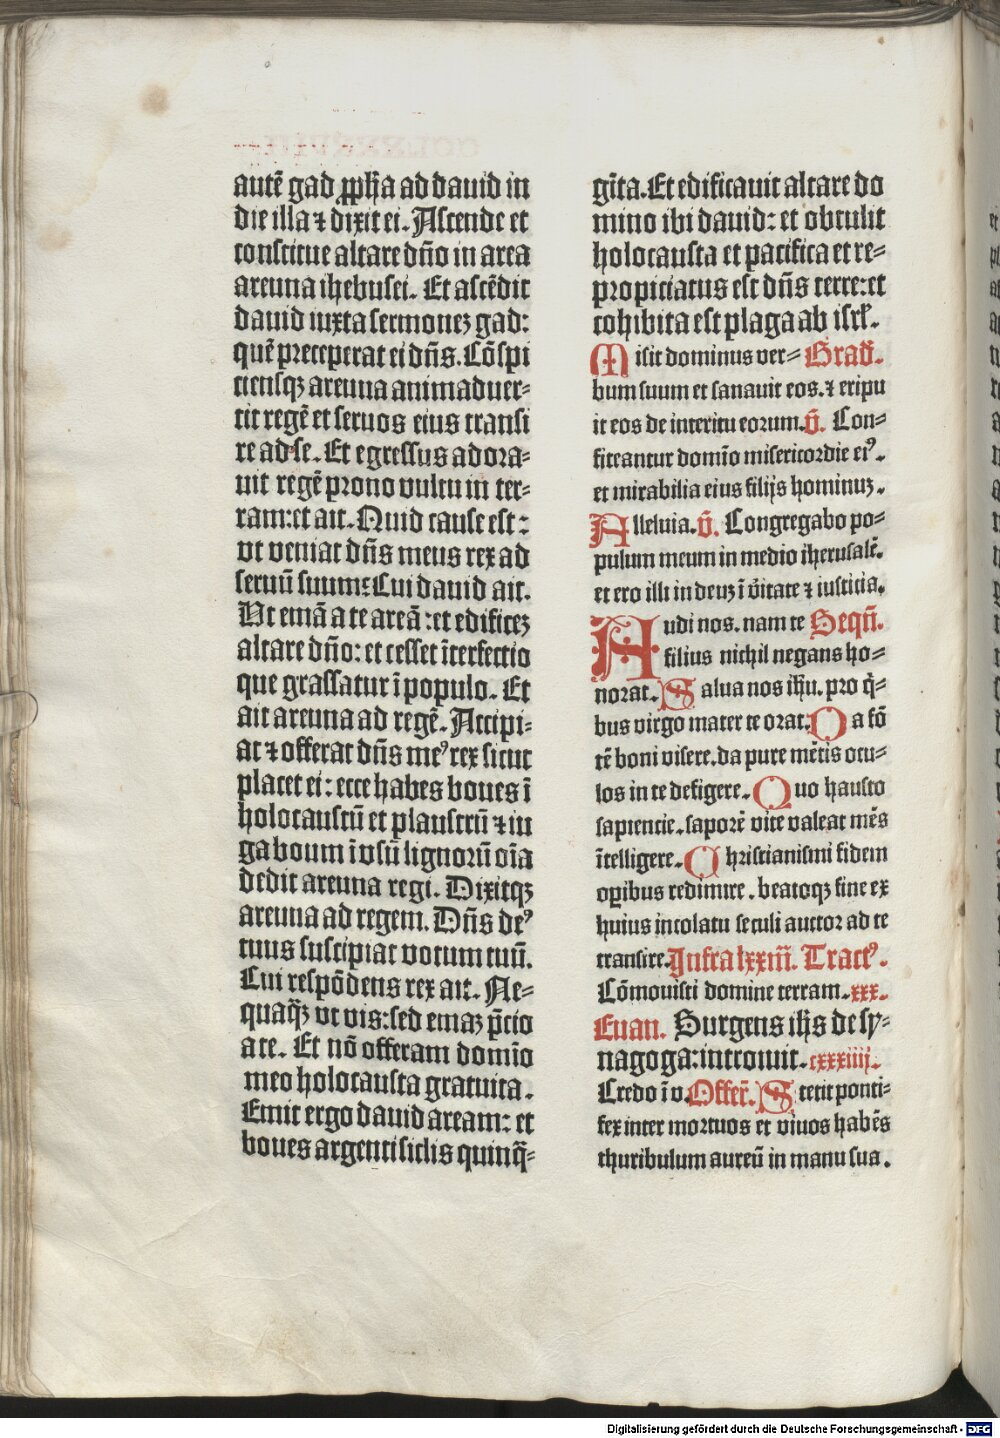 autē gad ꝓph̄a ad dauid in
die illa ⁊ dixit ei. Ascende et
constitue altare dn̄o in area
areuna ihebusei. Et ascēdit
dauid iuxta sermonez gad:
quē preceperat ei dn̄s. Cōspi
tiensqꝫ areuna animaduer⸗
tit regē et seruos eius transi
re ad se. Et egressus adora⸗
uit regē prono vultu in ter⸗
ram: et ait. Quid cause est:
vt veniat dn̄s meus rex ad
seruū suum: Cui dauid ait.
Vt emā a te areā: et edificez
altare dn̄o: et cesset īterfectio
que grassatur ī populo. Et
ait areuna ad regē. Accipi⸗
at ⁊ offerat dn̄s meꝰ rex sicut
placet ei: ecce habes boues ī
holocaustū et plaustrū ⁊ iu
ga boum ī vsū lignorū oīa
dedit areuna regi. Dixitqꝫ
areuna ad regem. Dn̄s deꝰ
tuus suscipiat votum tuū.
Cui respōdens rex ait. Ne⸗
quaq̄ꝫ vt vis: sed emaz p̄cio
a te. Et nō offeram domīo
meo holocausta gratuita.
Emit ergo dauid aream: et
boues argenti siclis quinq̄⸗
gīta. Et edificauit altare do
mino ibi dauid: et obtulit
holocausta et pacifica et re⸗
propiciatus est dn̄s terre: et
cohibita est plaga ab isrl̄.
Misit dominus ver⸗ Grad̄.
bum suum et sanauit eos. ⁊ eripu
it eos de interitu eorum. v̄. Con⸗
fiteantur domīo misericordie eiꝰ.
et mirabilia eius filijs hominuz.
Alleluia. v̄. Congregabo po⸗
pulum meum in medio iherusalē.
et ero illi in deuz ī v̄itate ⁊ iusticia.
Audi nos. nam te Seqn̄.
filius nichil negans ho⸗
norat. Salua nos ih̄u. pro q̄⸗
bus virgo mater te orat. Da fō
tē boni visere. da pure mētis ocu⸗
los in te defigere. Quo hausto
sapientie. saporē vite valeat mēs
ītelligere. Christianismi fidem
oꝑibus redimire. beatoqꝫ fine ex
huius incolatu seculi auctor ad te
transire. Infra lxxiii. Tractꝰ.
Cōmouisti domine terram. xxx.
Euan. Surgens ih̄s de sy⸗
nagoga: introiuit. cxxxiiij.
Credo ī v. Offer̄. Stetit ponti⸗
fex inter mortuos et viuos habēs
thuribulum aureū in manu sua.
Digitalisierung gefördert durch die Deutsche Forschungsgemeinschaft - DFG